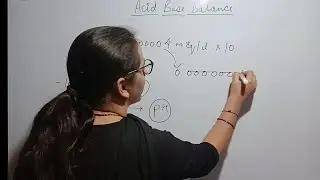 Acid Base balance
00004 mEq/l x 10
0 000000
PH